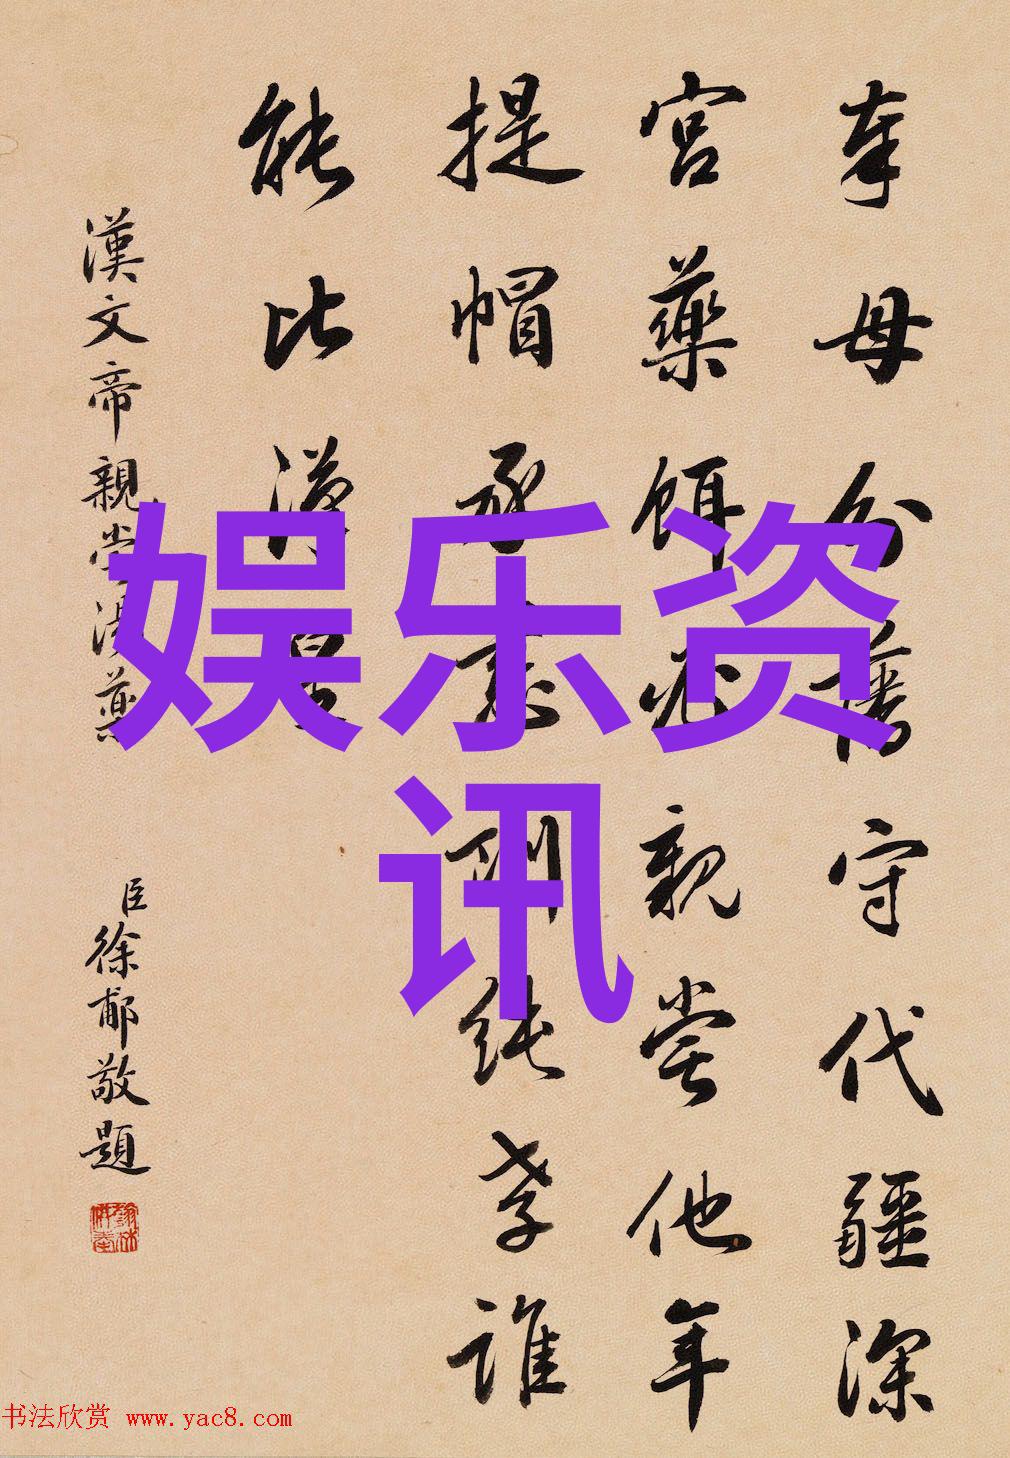 奉母分藩守代疆深
宮藥餌必親嘗他年
提帽承慈訓純孝誰
能比漢
漢文帝親嘗湯藥
臣徐郙敬題
娱乐资
讯
书法欣赏 www.yac8.com